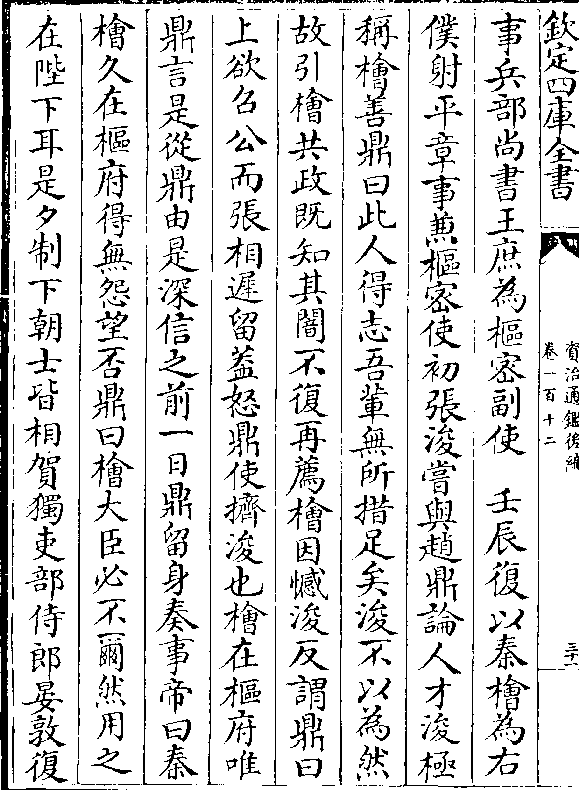 欽定四庫全書
資治通鑑後編
卷一百十二
三十
事兵部尚書王庶為樞密副使　壬辰復以秦檜為右
僕射平章事兼樞密使初張浚嘗與趙鼎論人才浚極
稱檜善鼎曰此人得志吾輩無所措足矣浚不以為然
故引檜共政既知其闇不復再薦檜因憾浚反謂鼎曰
上欲召公而張相遲留葢怒鼎使擠浚也檜在樞府唯
鼎言是從鼎由是深信之前一日鼎留身奏事帝曰秦
檜久在樞府得無怨望否鼎曰檜大臣必不爾然用之
在陛下耳是夕制下朝士皆相賀獨吏部侍郎晏敦復